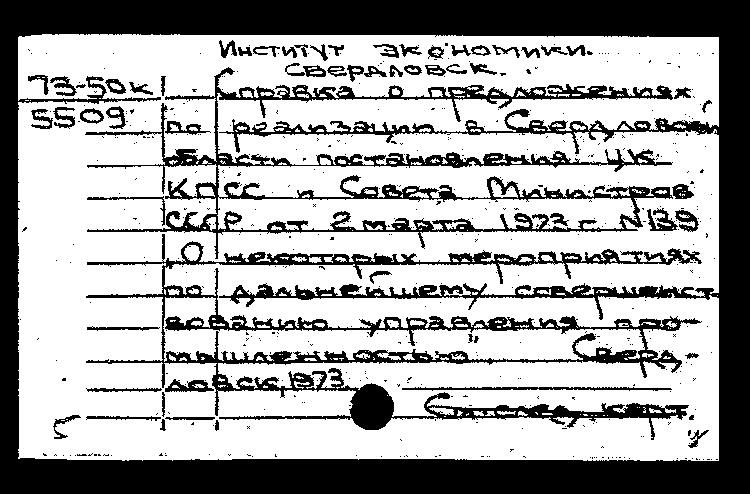 Институт экономики.
Свердловск.
73-50к
5509
Справка о предложениях
по реализации в Свердловской
области постановления ЦК
КПСС и Совета Министров
СССР от 2 марта 1973 г. N 139
"О некоторых мероприятиях
по дальнейшему совершенст-
вованию управления про-
мышленностью". Сверд-
ловск, 1973.
5